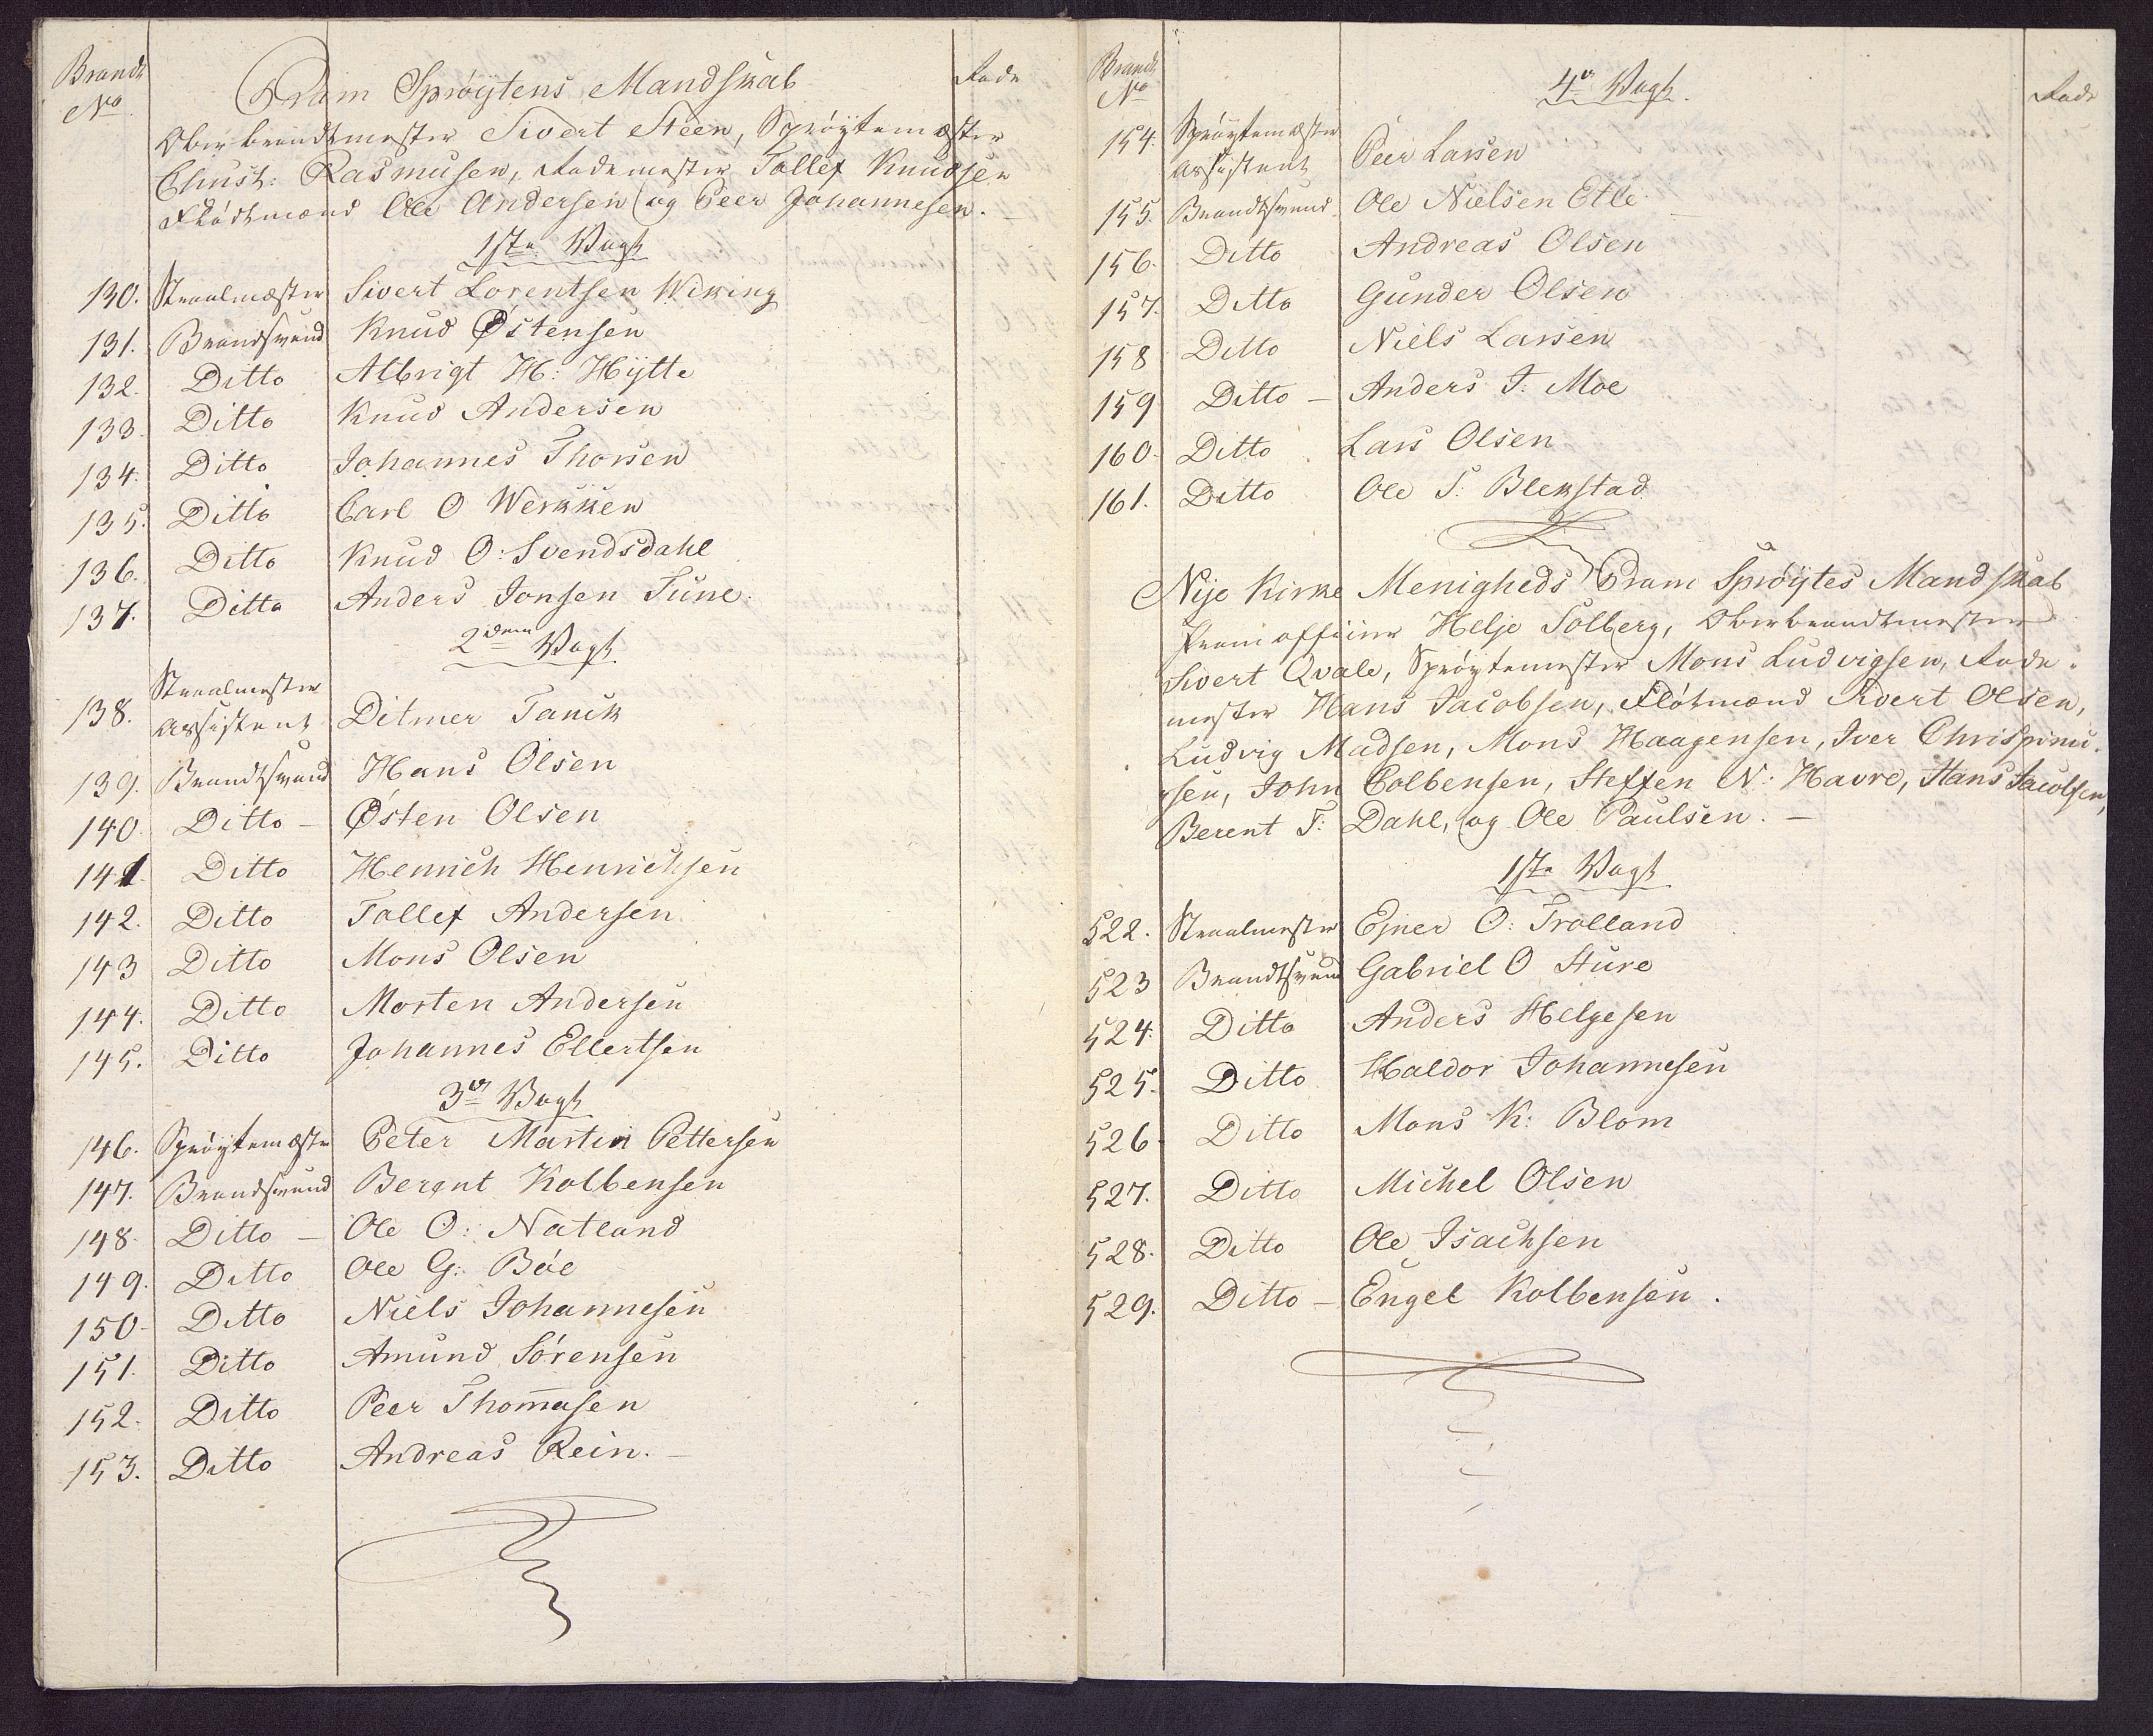 Brandt
No
Pram Sprøytens Mandskab
Rode
Oberbrandtmester Sivert Steen, Sprøytemester
Christ: Rasmusen, Rodemester Tollef Knudsen
Flódtmænd Ole Andersen og Peer Johannesen. –
1ste Vagt
130. Straalmester Sivert Lorentsen Wiking
131. Brandsvend Knud Østensen
132. Ditto Albrigt H: Hÿtte
133. Ditto Knud Andersen
134. Ditto Johannes Thorsen
135. Ditto Carl O Werkken
136. Ditto Knud O: Svendsdahl
137. Ditto Anders Jonsen Tune.
2den Vagt
138. Straalmester
Assistent Ditmer Tanck
139. Brandtsvend Hans Olsen
140. Ditto – Østen Olsen
141. Ditto Henrich Henrichsen
142. Ditto Tollef Andersen
143 Ditto Mons Olsen
144. Ditto Morten Andersen
145. Ditto Johannes Ellertsen
3de Vagt
146. Sprøytemester Peter Martin Pettersen
147. Brandsvend Berent Kolbensen
148. Ditto – Ole O: Natland
149. Ditto Ole G: Bóe
150. Ditto Niels Johannesen
151. Ditto Amund Sórensen
152. Ditto Peer Thomasen
153. Ditto Andreas Rein. –
Brandt
No
4de Vagt.
Rode
154. Sprøytemester
Assistent Peer Larsen
155. Brandtsvend Ole Nielsen Etle
156. Ditto Andreas Olsen
157. Ditto Gunder Olsen
158 Ditto Niels Larsen
159 Ditto – Anders J. Moe
160. Ditto Lars Olsen
161. Ditto Ole S. Blekstad
Nije Kirke Menigheds Pram Sprøytes Mandskab
Pramofficiier Helje Solberg, Oberbrandtmester
Sivert Qvale, Sprøytemester Mons Ludvigsen, Rode-
mester Hans Jacobsen, Flótmænd Sivert Olsen,
Ludvig Madsen, Mons Haagensen, Iver Chrispinu-
sen, John Colbensen, Steffen N: Havre, Hans Jacobsen,
Berent T: Dahl, og Ole Paulsen. –
1ste Vagt
522. Straalmester Ejner O: Trolland
523 Brandtsvend Gabriel O Sture
524. Ditto Anders Helgesen
525. Ditto Haldor Johannesen
526. Ditto Mons K: Blom
527. Ditto Michel Olsen
528. Ditto Ole Isachsen
529. Ditto – Engel Kolbensen.